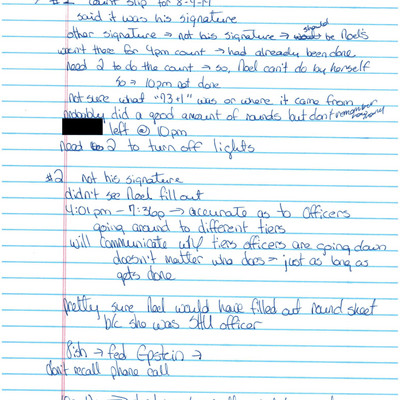 #1 count slip for 8-9-19
said it was his signature
other signature → not his signature → should be Noel's
wasn't there for 4pm count → had already been done
need 2 to do the count → so, Noel can't do by herself
so → 10pm not done
not sure what "73+1" was or where it came from
probably did a good amount of rounds but don't remember
left @ 10pm
need 2 to turn off lights
#2 not his signature
didn't see Noel fill out
4:01pm - 7:36p → accurate as to officers
going around to different tiers
will communicate w/ tiers officers are going down
doesn't matter who does = just as long as
gets done
pretty sure Noel would have filled out round sheet
b/c she was SHU officer
fed Epstein →
don't recall phone call